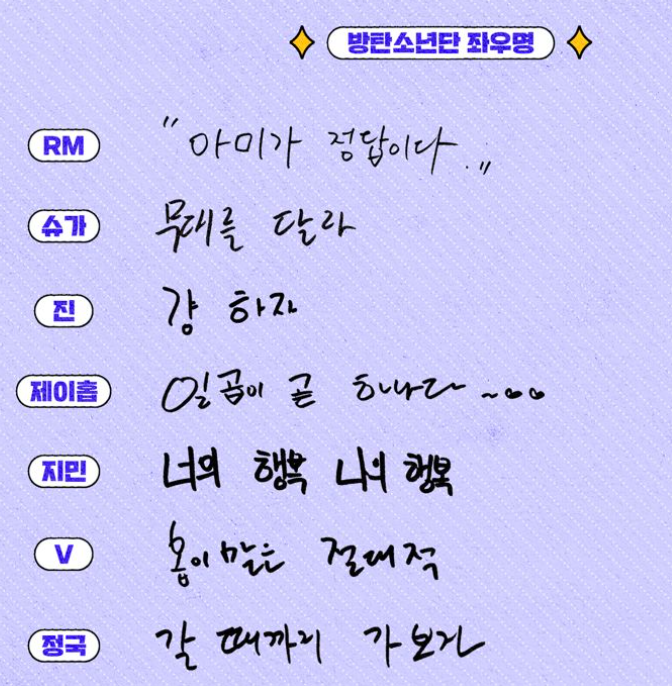 방탄소년단 좌우명
RM "아미가 정답이다."
슈가 무대를 달라
진 걍 하자
제이홉 일곱이 곧 하나다~
지민 너의 행복 나의 행복
V 홉이 말은 절대적
정국 갈 때까지 가보자